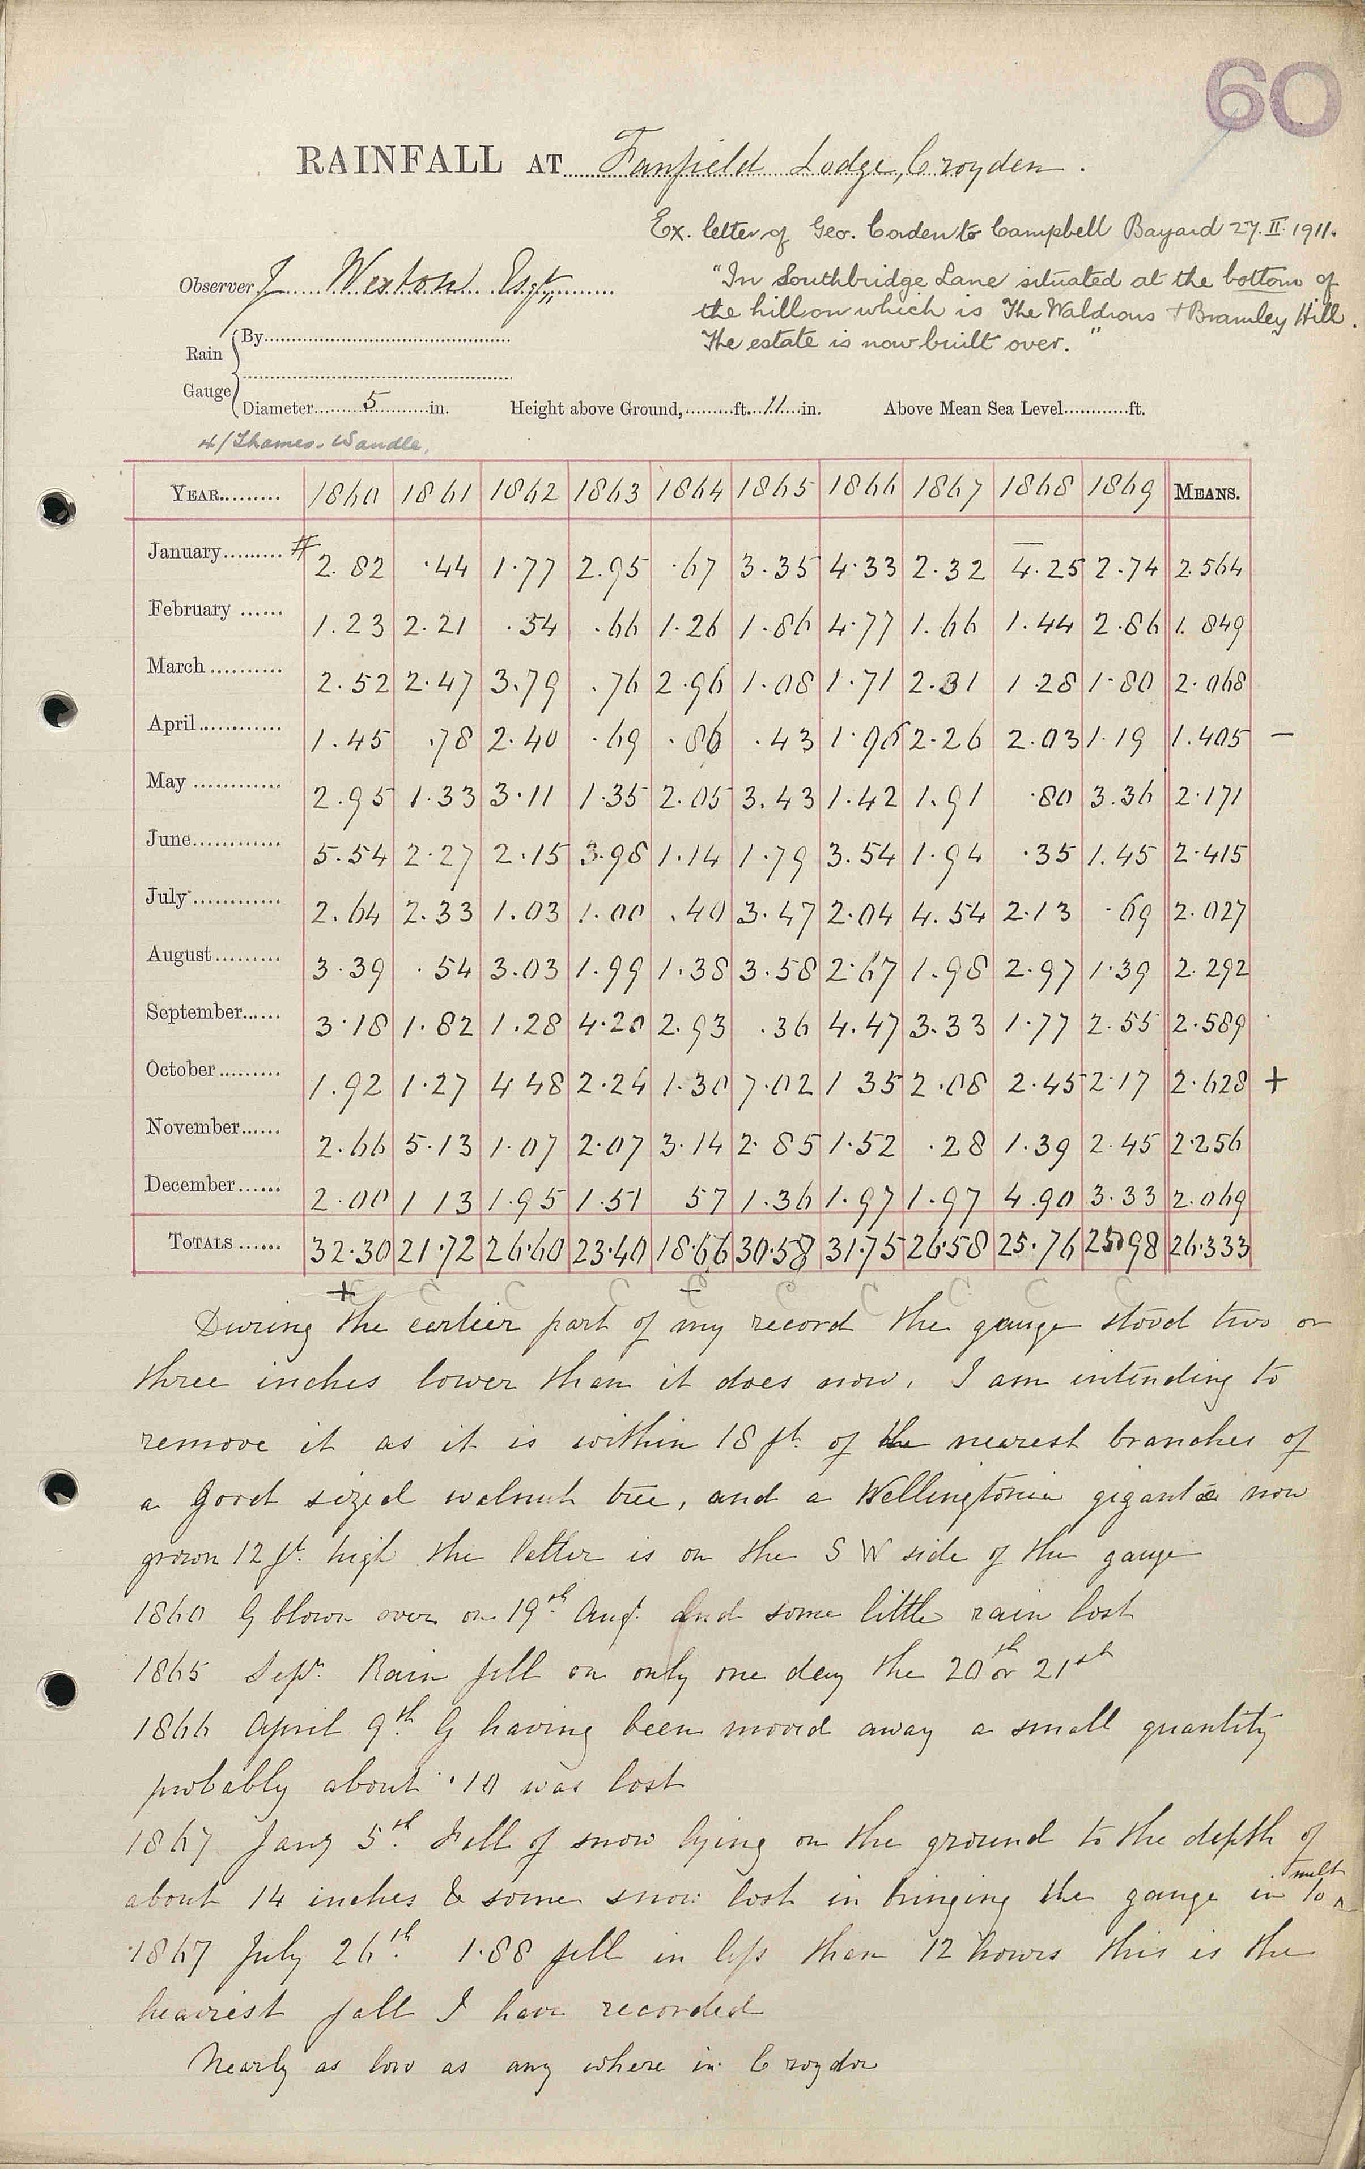 60
RAINFALL AT Fanfield Lodge, Croyden.
Ex. letter of Geo. Corden to Campbell Bayard 27. II. 1911.
"In Southbridge Lane situated at the bottom of
the hills on which is The Waldrons + Bramley Hill.
The estate is now built over."
Observer J Weston Esqr
Rain Gauge
By
Diameter 5 in. Height above Ground, ft. 11 in. Above Mean Sea Level ft.
4/Thames. Wandle.
YEAR 1860 1861 1862 1863 1864 1865 1866 1867 1868 1869 MEANS.
January # 2.82 .44 1.77 2.95 .67 3.35 4.33 2.32 4.25 2.74 2.564
February 1.23 2.21 .54 .66 1.26 1.86 4.77 1.66 1.44 2.86 1.849
March 2.52 2.47 3.79 .76 2.96 1.08 1.71 2.31 1.28 1.80 2.068
April 1.45 .78 2.40 .69 .86 .43 1.96 2.26 2.03 1.19 1.405 –
May 2.95 1.33 3.11 1.35 2.05 3.43 1.42 1.91 .80 3.36 2.171
June 5.54 2.27 2.15 3.98 1.14 1.79 3.54 1.94 .35 1.45 2.415
July 2.64 2.33 1.03 1.00 .40 3.47 2.04 4.54 2.13 .69 2.027
August 3.39 .54 3.03 1.99 1.38 3.58 2.67 1.98 2.97 1.39 2.292
September 3.18 1.82 1.28 4.20 2.93 .36 4.47 3.33 1.77 2.55 2.589
October 1.92 1.27 4 48 2.24 1.30 7.02 1 35 2.08 2.45 2.17 2.628 +
November 2.66 5.13 1.07 2.07 3.14 2.85 1.52 .28 1.39 2.45 2.256
December 2.00 1 13 1.95 1.51 57 1.36 1.97 1.97 4.90 3.33 2.069
TOTALS 32.30 21.72 26.60 23.40 18.66 30.58 31.75 26.58 25.76 25.98 26.333
+ C C C C C C C C C
During the earlier part of my record the gauge stood two or
three inches lower than it does now. I am intending to
remove it as it is within 18 ft. of the nearest branches of
a good sized walnut tree, and a Wellingtonia gigantea now
grown 12 ft. high the latter is on the S W side of the gauge
1860 G blown over on 19th Augt. and some little rain lost
1865 Sept. Rain fell on only one day the 20th or 21st
1866 April 9th. G having been moved away a small quantity
probably about .10 was lost
1867 Jany 5th. Fall of snow lying on the ground to the depth of
about 14 inches & some snow lost in bringing the gauge in to melt
1867 July 26th. 1.88 fell in less than 12 hours this is the
heaviest fall I have recorded
Nearly as low as any where in Croydon